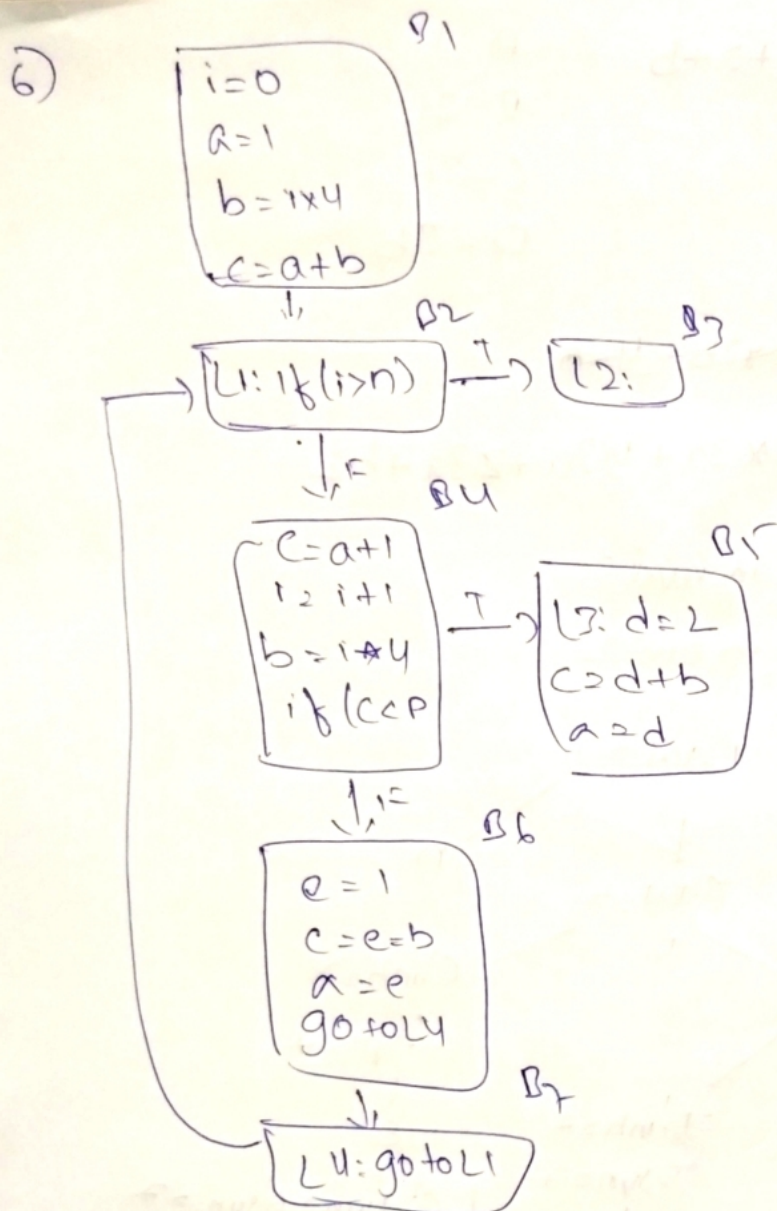 6)
B1
i=0
a=1
b=i*4
c=a+b
B2
L1: if(i>n)
T
B3
L2:
F
B4
c=a+1
i=i+1
b=i*4
if(c<p
T
B5
L3: d=2
c=d+b
a=d
F
B6
e=1
c=e=b
a=e
goto L4
B7
L4: goto L1